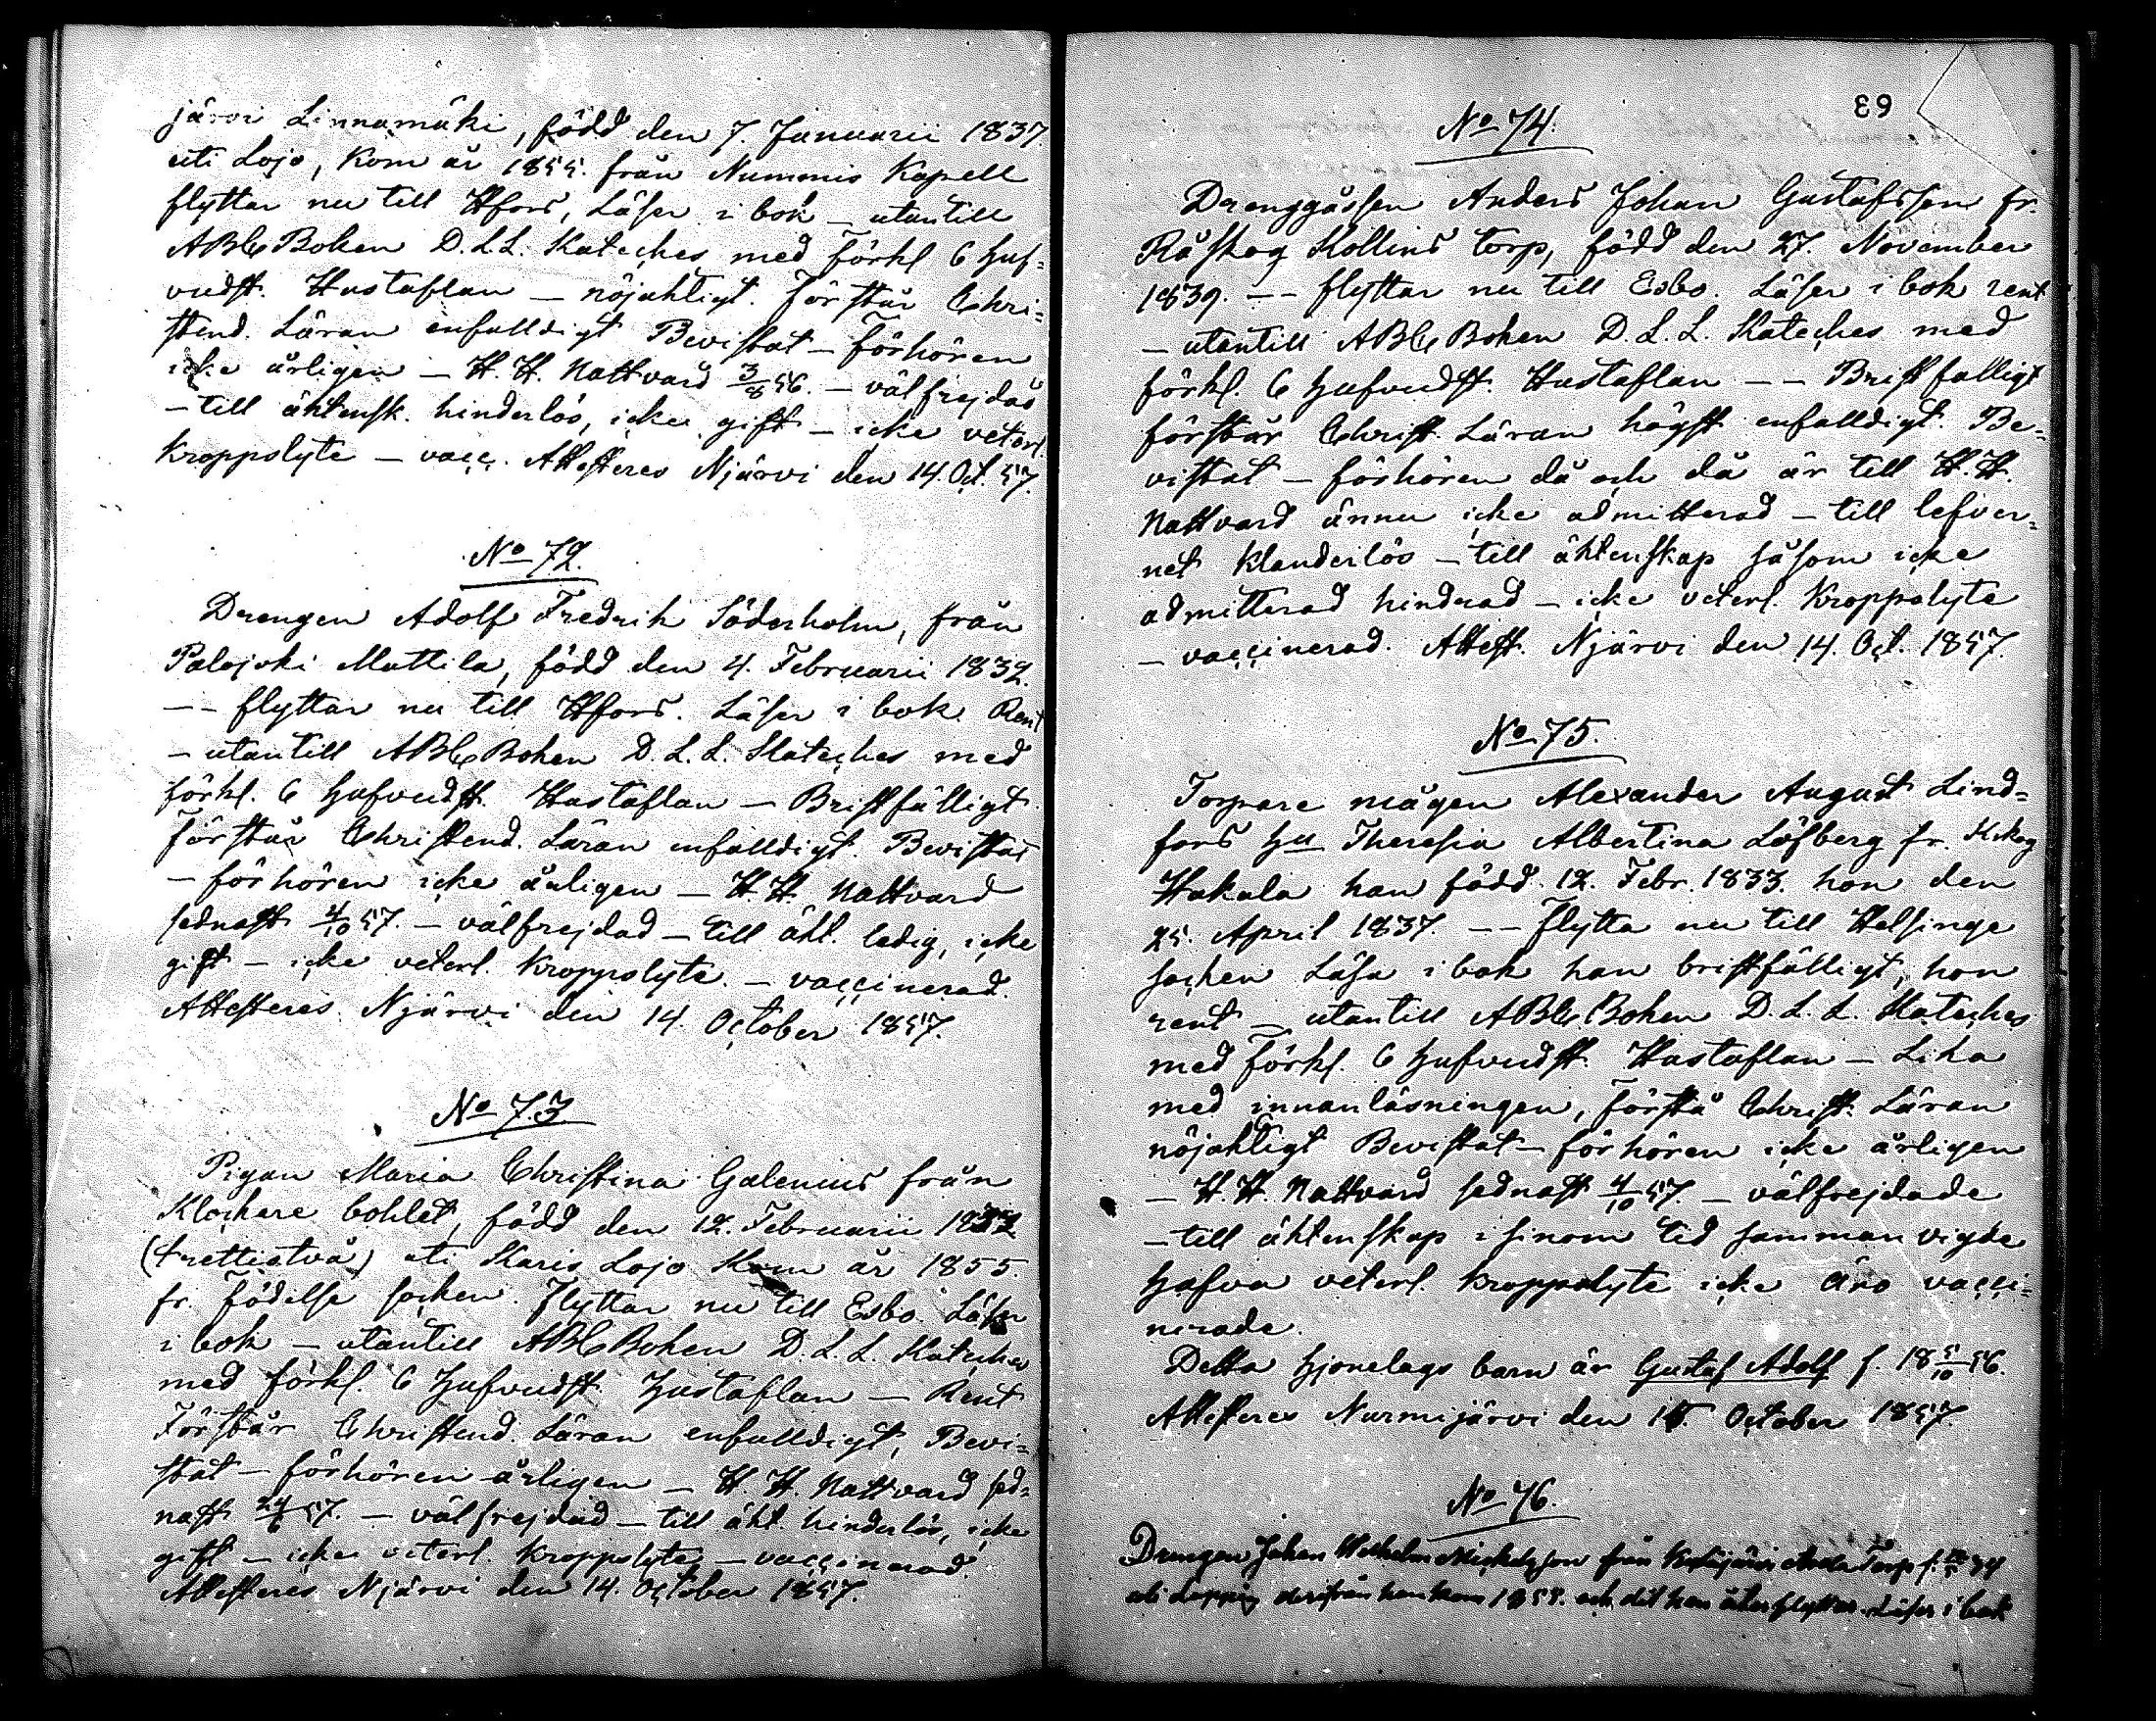 järvi Linnamäki, född den 7. Januarii 1837.
uti Lojo, Kom år 1855. från Nummis Kapell
flyttar nu till Hfors, Läser i bok – utantill
ABC Boken D.L.L. Kateches med Förkl 6 Huf=
vudst. Hustaflan – nöjaktigt. Förstår Chri=
stend. Läran enfalldigt Bevistat – Förhören
icke årligen – H. H. Nattvard 3/8 56. – välfrejdad
– till äktensk. hinderlös, icke gift – icke veterl.
Kroppslyte – vacc. Attesteres Njärvi den 14. Oct. 57.
No 72.
Drengen Adolf Fredrik Söderholm, från
Palojoki Mattila, född den 4. Februarii 1832.
-- flyttar nu till Hfors. Läser i bok Rent
– utantill ABC Boken D. L. L. Kateches med
förkl. 6 Hufvudst. Hustaflan – Bristfälligt
Förstår Christend. Läran enfalldigt. Bevistat
– förhören icke årligen – H. H. Nattvard
sednast 4/10 57. – välfrejdad – till äkt. ledig, icke
gift – icke veterl. Kroppslyte. – vaccinerad.
Attesteres Njärvi den 14. October 1857.
No 73
Pigan Maria Christina Galenius från
Klockare bohlet, född den 12. Februarii 1832
(trettiotvå) uti Karis Lojo Kom år 1855.
fr. Födelse socken. Flyttar nu till Esbo. Läser
i bok – utantill ABC Boken D. L. L. Kateches
med förkl. 6 Hufvudst. Hustaflan – Rent
Förstår Christend. Läran enfalldigt, Bevi=
stat – förhören årligen – H. H. Nattvard sed=
nast 24/6 57. – välfrejdad – till äkt. hinderlös, icke
gift – icke veterl. Kroppslyte – vaccinerad.
Attesteres Njärvi den 14. October 1857.
63
No 74.
Drenggåssen Anders Johan Gustafsson fr.
Råskog Kollins torp, född den 27. November
1839. -- flyttar nu till Esbo. Läser i bok rent
– utantill ABC Boken D. L. L. Kateches med
förkl. 6 Hufvudst. Hustaflan -- Bristfälligt
förstår Christ. Läran högst enfalldigt. Be=
vistat – förhören då och då är till H. H.
Nattvard ännu icke admitterad – till lefver=
net klanderlös – till äktenskap såsom icke
admitterad hindrad – icke veterl. Kroppslyte
– vaccinerad. Attest. Njärvi den 14. Oct. 1857.
No 75.
Torpare mågen Alexander August Lind=
fors Hu Theresia Albertina Löfberg fr.
Hakala han född 12. Febr. 1833. hon den
25. April 1837. -- Flytta nu till Helsinge
socken Läsa i bok han bristfälligt, hon
rent – utantill ABC Boken D. L. L. Kateches
med Förkl. 6 Hufvudst. Hustaflan – Lika
med innanläsningen, Förstå Christ. Läran
nöjaktigt Bevistat – förhören icke årligen
– H. H. Nattvard sednast 4/10 57. – välfrejdade
– till äktenskap i sinom tid samman vigde
Hafva veterl. Kroppslyte icke Äro vacci=
nerade.
Detta Hjonelags barn är Gustaf Adolf f. 18 5/10 56.
Attesteres Nurmijärvi den 15. October 1857.
No 76.
Drengen Johan Wilhelm Michelsson från Torp f.
uti Loppis derifrån han kom 1855. och dit han åter flyttar. Läser i bok